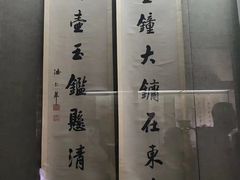 鐘大鏞在東
壺玉鑑懸清